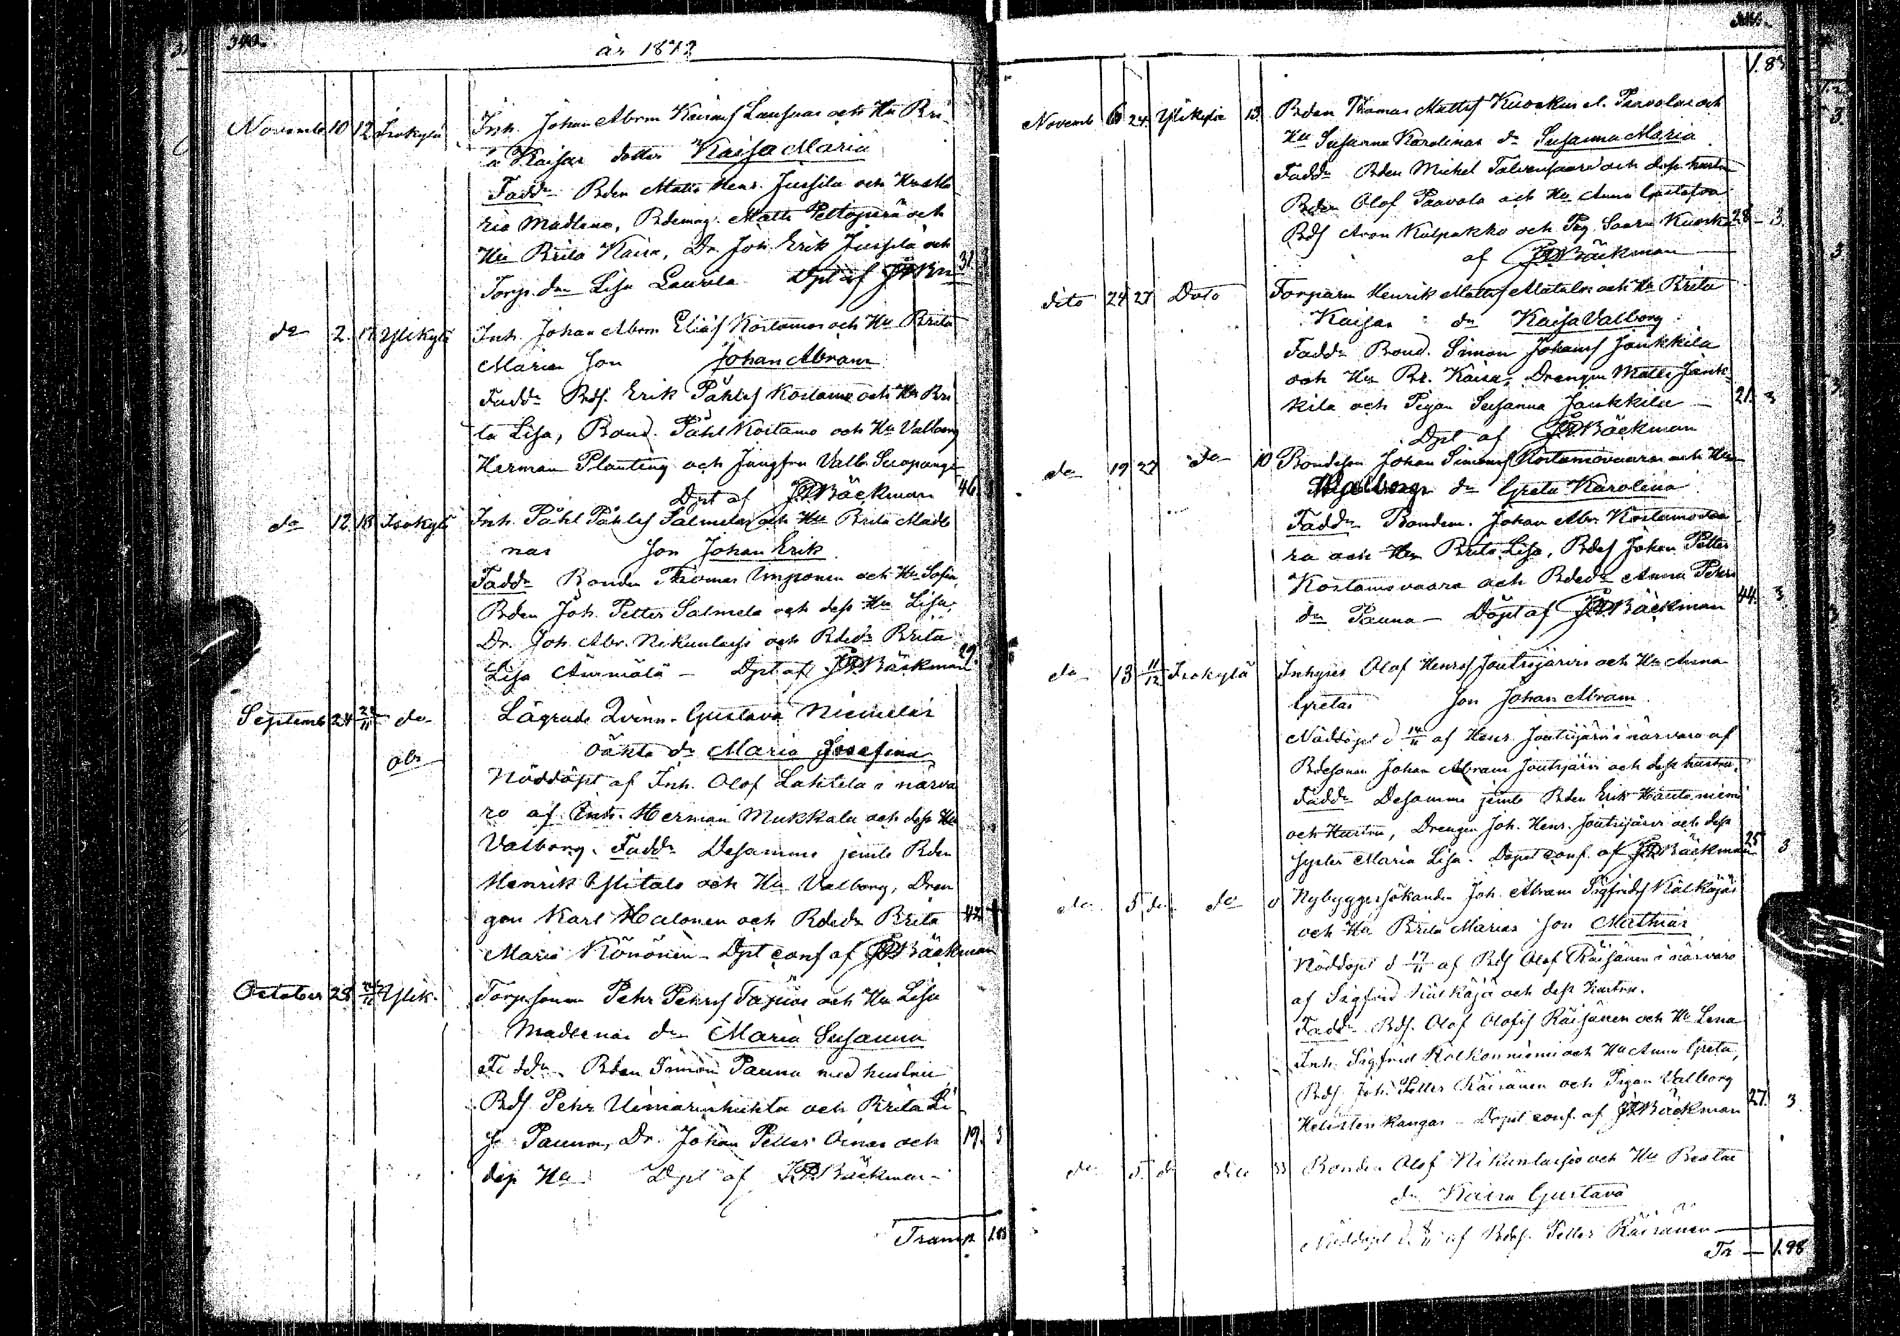 340.
år 1873
Novemb 10 12 Isokylä Inh. Johan Abrm Kairas Lausuas och Hu Bri
ta Kaisas dotter Kaisa Maria
Fadd. Bden Matts Henr. Jussila och Hu Ma
ria Madlena, Bdemåg. Matts Peltoperä och
Hu Brita Kaisa, Dr. Joh. Erik Jussila och
Torp. d. Lisa Laurila Dpt af JFBn 31
do 2. 17 Ylikylä Inh. Johan Abrm Eliæs Kostamos och Hu Brita
Marias son Johan Abram
Fadd. Bds. Erik Påhls Kostamo och Hu Bri
ta Lisa, Bond. Påhl Kostamo och Hu Valborg
Herman Planting och Jungfru Valb. Suopanga
Dpt af JFBäckman 46
do 12 18 Isokylä Inh. Påhl Påhls Salmelas och Hu Brita Madle
nas son Johan Erik
Fadd. Bonden Thomas Imponen och Hu Sofia,
Bden Joh. Petter Salmela och dess Hu Lisa,
Dr. Joh. Abr. Nikunlassi och Bdedr Brita
Lisa Äärmälä – Dpt af JFBäckman 29
Septemb 24 do Lägrade Qvinn. Gustava Niemelas
oäkta dr Maria Josefina
Nöddöpt af Inh. Olof Lahtela i närva
ro af Inh. Herman Mukkala och dess Hu
Valborg. Fadd. Desamma jemte Bden
Henrik Ylitalo och Hu Valborg, Dren
gen Karl Halonen och Bdedr Brita 42
Maria Könönen – Dpt conf af JFBäckman
October 28 Ylik. Torp.sonen Pehr Pehrs Tapios och Hu Lisa
Madlenas dr Maria Susanna
Fadd. Bden Simon Pauna med hustru
Bds. Pehr Uimarinhuhta och Brita Li
sa Pauna, Dr. Johan Petter Oinas och 19. 3
dess Hu Dpt af JFBäckman
Transp 1.83
1.83
Novemb 6 24 Ylikylä 13 Bden Thomas Matts Kuoskus l. Paavolas och
Hu Susanna Karolinas dr Susanna Maria
Fadd. Bden Michel Talvensaari och dess hustru
Bden Olof Paavola och Hu Anna Gustafva
Bds Aron Kulpakko och Pig. Saara Kuosku 28 – 3
af JFBäckman
dito 24 27 Dito Torparen Henrik Matts Matalas och Hu Brita
Kaisas dr Kaisa Valborg
Fadd. Bond. Simon Johans Jaukkila
och Hu Br. Kaisa, Drengen Matts Jauk-
kila och Pigan Susanna Jaukkila – 21. 3
Dpt af JFBäckman
do 19 27 do 10 Bondeson Johan Simons Kostamovaaras och Hu
dr Greta Karolina
Fadd. Bonden. Johan Abr. Kostamovaa
ra och Hu Brita Lisa, Bds Johan Petter
Kostamovaara och Bdedr Anna Pehrs
dr Pauna – Döpt af JFBäckman 44. 3.
do 13 11/12 Isokylä Inhyses Olof Henrs Joutsijärvis och Hu Anna
Gretas son Johan Abram
Nöddöpt d 14/11 af Henr. Joutsijärvi i närvaro af
Bdesonen Johan Abram Joutsijärvi och dess hustru.
Fadd. Desamma jemte Bden Erik Hautaniemi
och Hustru, Drengen Joh. Henr. Joutsijärvi och dess 25 3
syster Maria Lisa. Döpt conf. af JFBäckman
do 5 do do Nybyggessökanden Joh. Abram Sigfrids Kälkäjäs
och Hu Brita Marias son Mathias
Nöddöpt d 17/11 af Bds Olof Räisänen i närvaro
af Sigfrid Kälkäjä och dess Hustru.
Fadd. Bds. Olof Olofs Räisänen och Hu Lena
Inh. Sigfrid Kotkanniemi och Hu Anna Greta,
Bds. Joh. Petter Räisänen och Pigan Valborg
Helistenkangas – Döpt conf. af JFBäckman 27. 3.
do 5 do dito 33 Bonden Olof Nikunlassis och Hu Beatas
dr Kaisa Gustava
Nöddöpt d. 8/11 af Bds. Petter Räisänen
Tr – 1.98